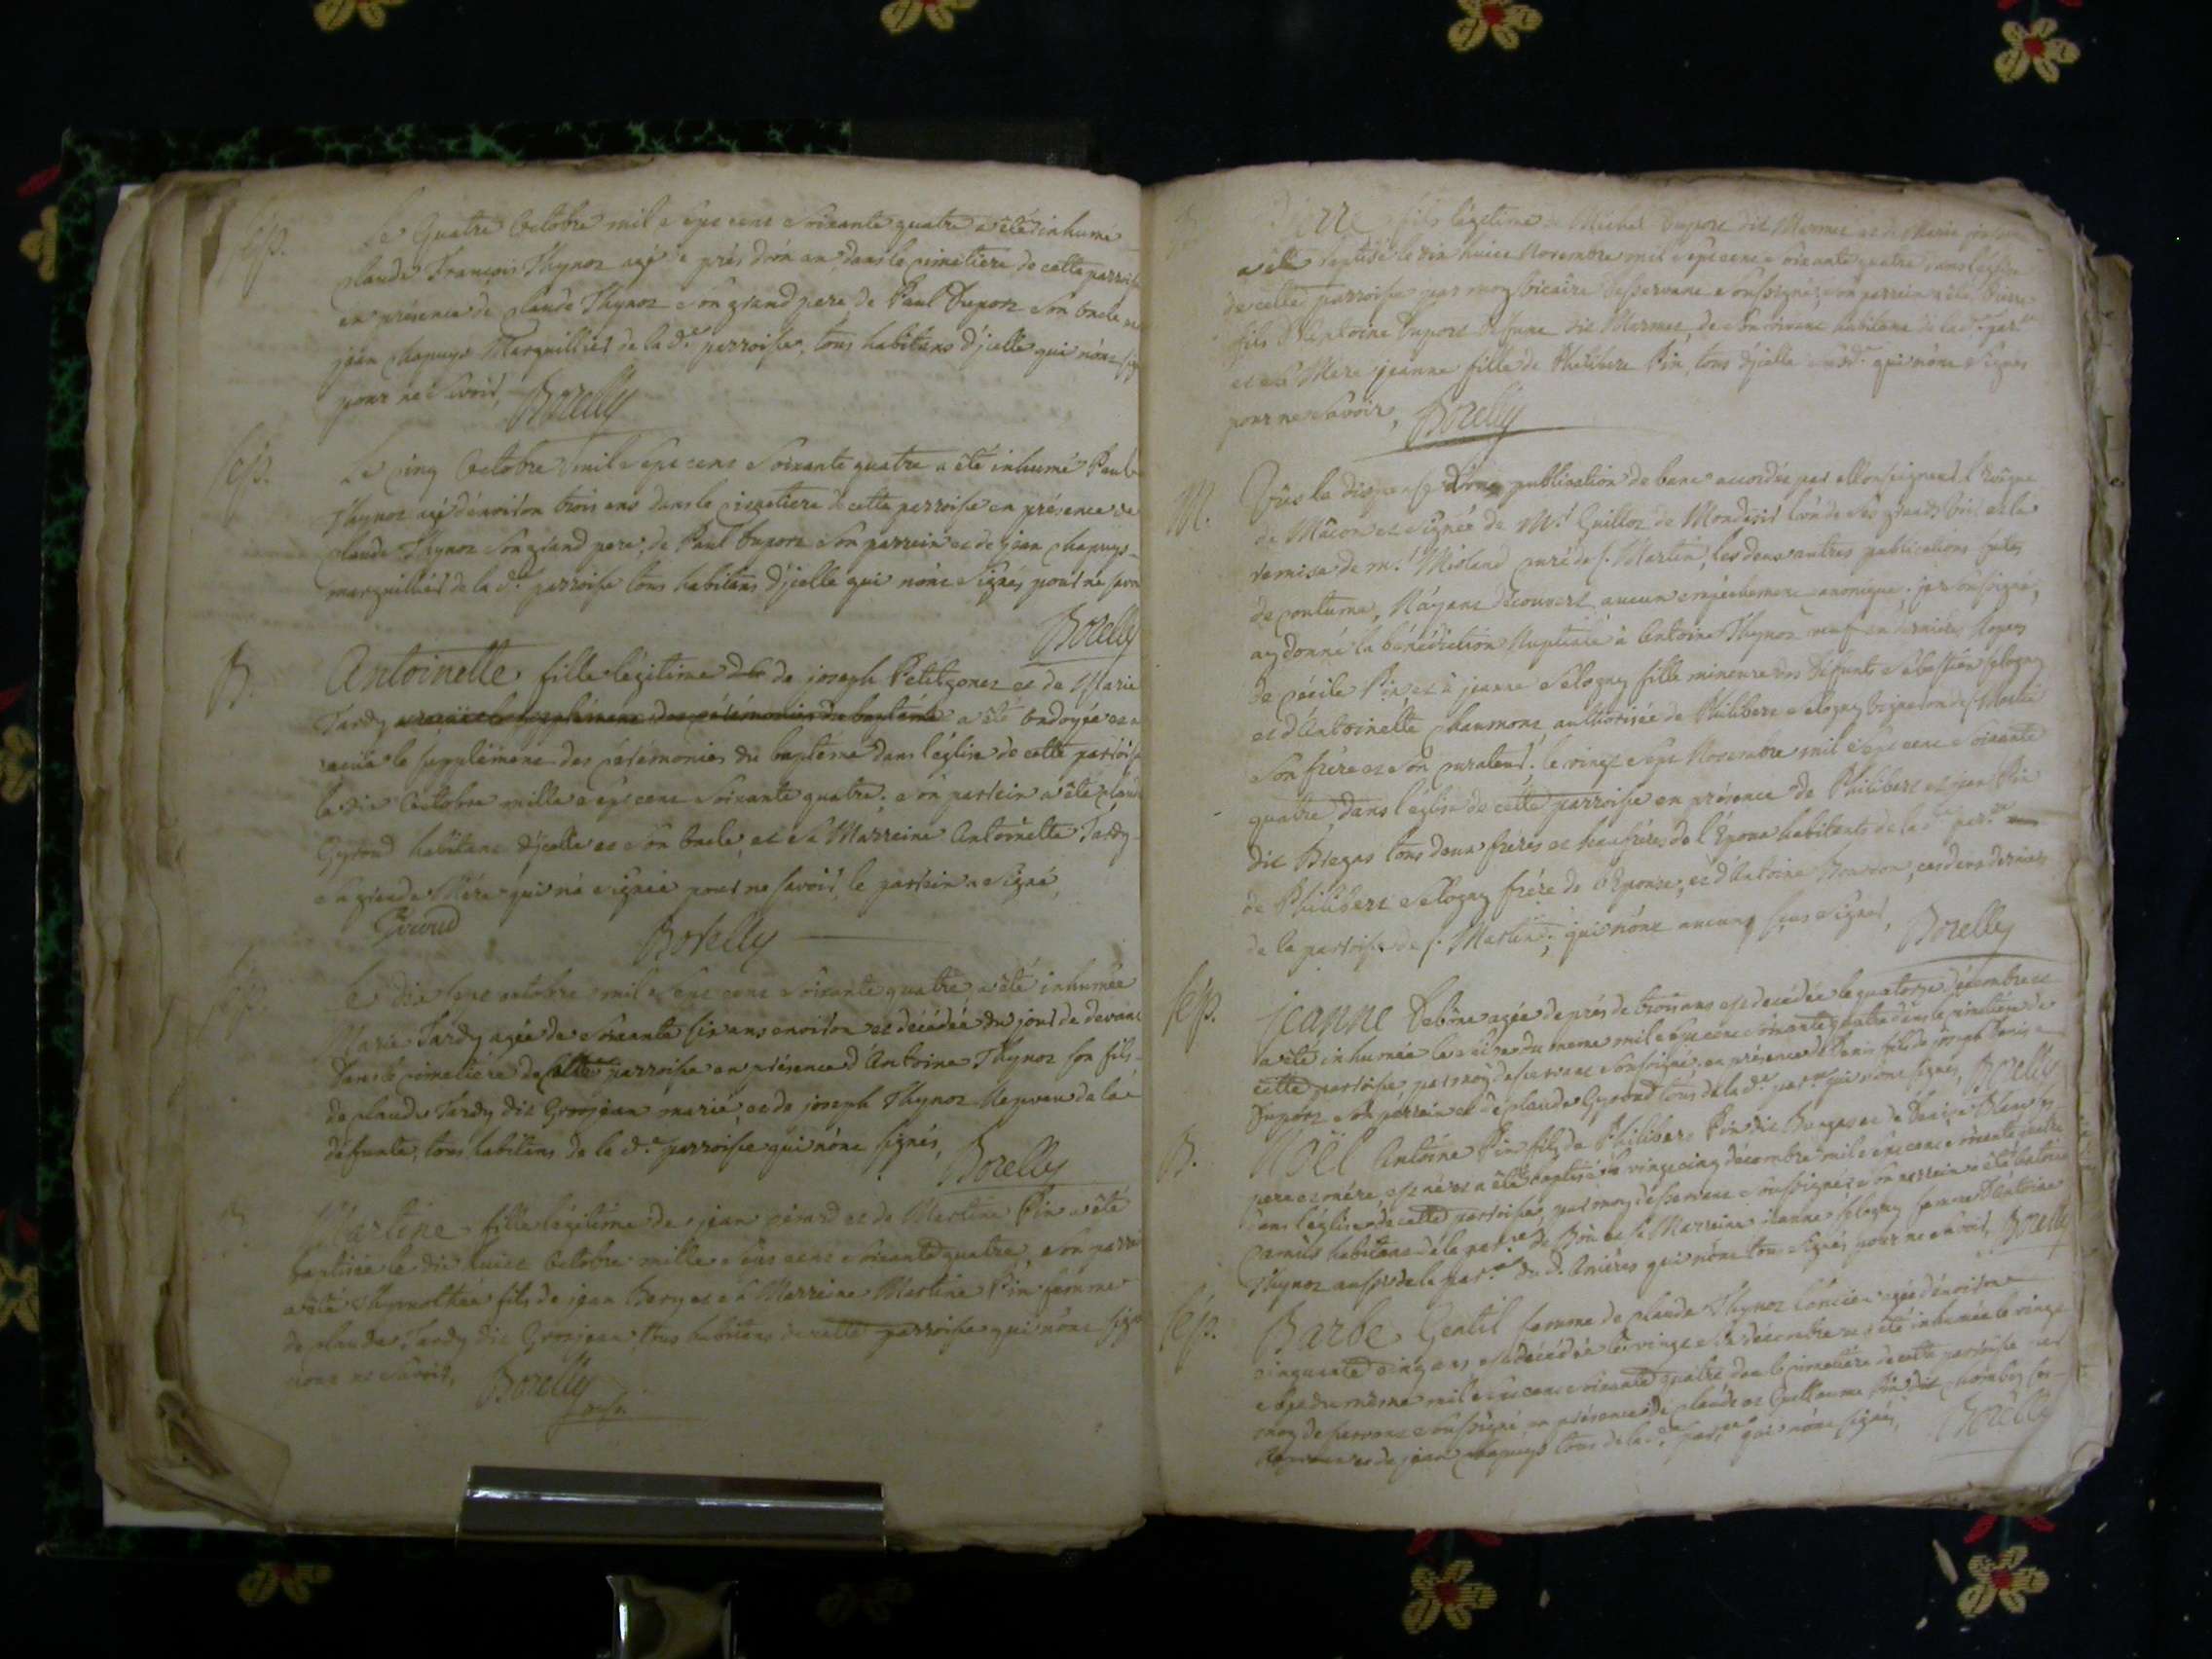 sép. Le Quatre Octobre mil sept cent soixante quatre a été inhumé
claude François Thynoz agé de prés d'ún an, dans le cimetiere de cette parroisse
en présence de claude Thynoz son grand pere de Paul Dupont son oncle
jean chapuys Marguillier de la d.e parroisse, tous habitans d'jcelle qui n'ont
pour ne savoir, Borelly
sép. Le cinq Octobre mil sept cent soixante quatre a été inhumé Paul
Thynoz agé d'environ trois ans dans le cimetiere de cette parroisse en présence de
claude Thynoz son grand pere, de Paul Dupont son parrein et de jean chapuys
marguillier de la d.e parroisse tous habitans d'jcelle qui n'ont signés pour ne
Borelly
B. Antoinette fille légitime de joseph Petitgonet et de Marie
Tardy a reçüe le supplément des cérémonies du baptême a été ondoyée et a
reçüe le supplément des cérémonies du baptême dans l'église de cette parroisse
le dix Octobre mille sept cent soixante quatre; son parrein a été claude
Gyroud habitant d'jcelle et son oncle, et sa Marreine Antoinette Tardy
sa grande Mére qui n'a signée pour ne savoir, le parrein a signé,
Giroud Borelly
sép. Le dix sept octobre mil sept cent soixante quatre a été inhumée
Marie Tardy agée de soixante six ans environ et décédée du jour de devant
dans le cimetiere de cette parroisse en présence d'Antoine Thynoz son fils
de claude Tardy dit Grosjean marié, et de joseph Thynoz Nepveu de la
défunte, tous habitans de la d.e parroisse qui n'ont signés, Borelly
B. Martine fille légitime de jean pérard et de Martine Pin a été
baptisée le dix huict Octobre mille sept cent soixante quatre, son parrein
a été Thymothée fils de jean Berg et sa Marreine Martine Pin femme
de claude Tardy dit Grosjean tous habitans de cette parroisse qui n'ont
pour ne savoir, Borelly
B. Pierre fils légitime de Michel Dupont dit Marmet et de Marie
a été baptisé le vin huict Novembre mil sept cent soixante quatre dans l'église
de cette parroisse par moy vicaire desservant soussigné, son parrein a été Pierre
fils d'Antoine Dupont défunt dit Marmet de son vivant habitant de la d.e par.sse
et sa Mere jeanne fille de Philibert Pin, tous d'jcelle qui n'ont signés
pour ne savoir, Borelly
M. Vüs la dispense d'une publication de banc accordée par Monseigneur l'Evêque
de Mâcon et signée de M.r Guilloz de Mondésir l'ún de ses grands vic. et la
remise de m.r Misland curé de s. Martin, les deux autres publications faites
de coutume, N'ayant découvert aucun empéchement canonique; je soussigné,
ay donné la bénédiction Nuptiale à Antoine Thynoz veuf en derniéres Nopces
de cécile Pin et à jeanne Sélogny fille mineure des défunts Sébastien sélogny
et d'Antoinette chaumont, authorisée de Philibert Sélogny vigneron de s. Martin
son frére et son curateur; le vingt sept Novembre mil sept cent soixante
quatre, dans l'église de cette parroisse en présence de Philibert et jean Pin
dit Bregas tous deux fréres et beaufréres de l'Epoux habitants de la d.e par.sse
de Philibert Sélogny frére de l'Epouse, et d'Antoine Bourdon, ces deux derniers
de la parroisse de s. Martin; qui n'ont aucuns sçus signer, Borelly
sép. jeanne Lebône agée de prés de trois ans est décédée le quatorze décembre et
a été inhumée le seize du meme mil sept cent soixante quatre dans le cimetiere de
cette parroisse, par moy desservant soussigné, en présence de Denis fils de joseph
Dupont son parrein et de claude Gyroud tous de la d.e par.sse qui n'ont signés, Borelly
B. Noël Antoine Pin fils de Philibert Pin dit Bregas et de Denise Blanc ses
pere et mére, est né et a été baptisé le vingt cinq décembre mil sept cent soixante quatre
dans l'église de cette parroisse, par moy desservant soussigné; son parrein a été Antoine
camus habitant de la par.sse de et sa Marreine jeanne sélogny femme d'Antoine
Thynoz aussi de la par.sse du d. Aniéres qui n'ont tous signés pour ne savoir, Borelly
sép. Barbe Gentil femme de claude Thynoz l'áncien agée d'environ
cinquante cinq ans, est décédée le vingt six décembre et a été inhumée le vingt
sept du même mil sept cent soixante quatre dans le cimetiere de cette parroisse par
moy desservant soussigné en présence de claude et Guillaume Pin dit ses
Nepveux et de jean chapuys tous de la d.e par.sse qui n'ont signés, Borelly